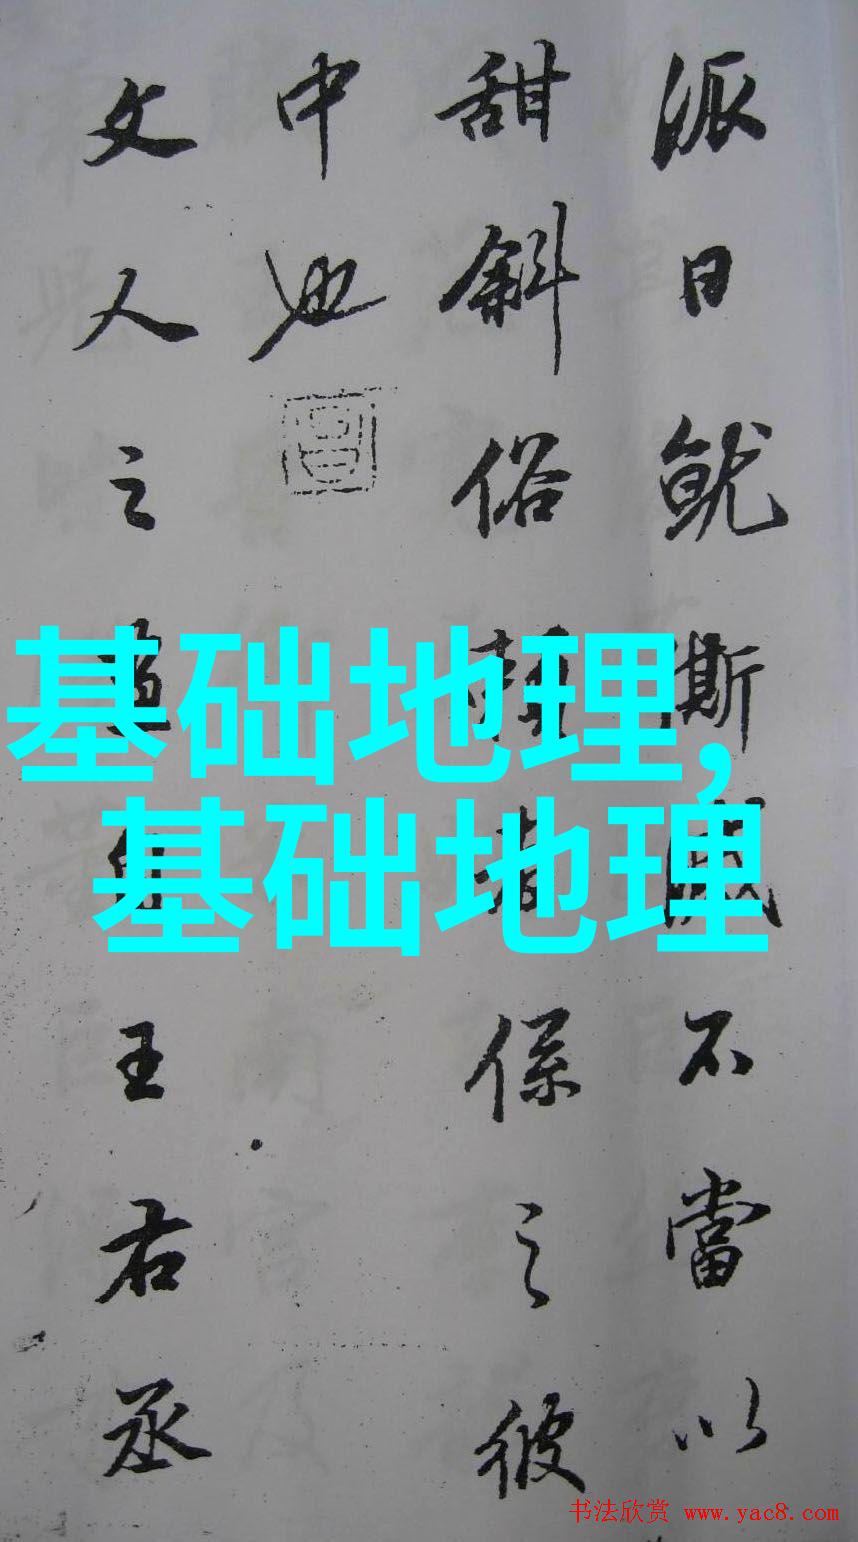 派日就澌滅不當以
甜斜俗賴者係之彼
中也
文人之畫自王右丞
基础地理,
基础地理
书法欣赏 www.yac8.com